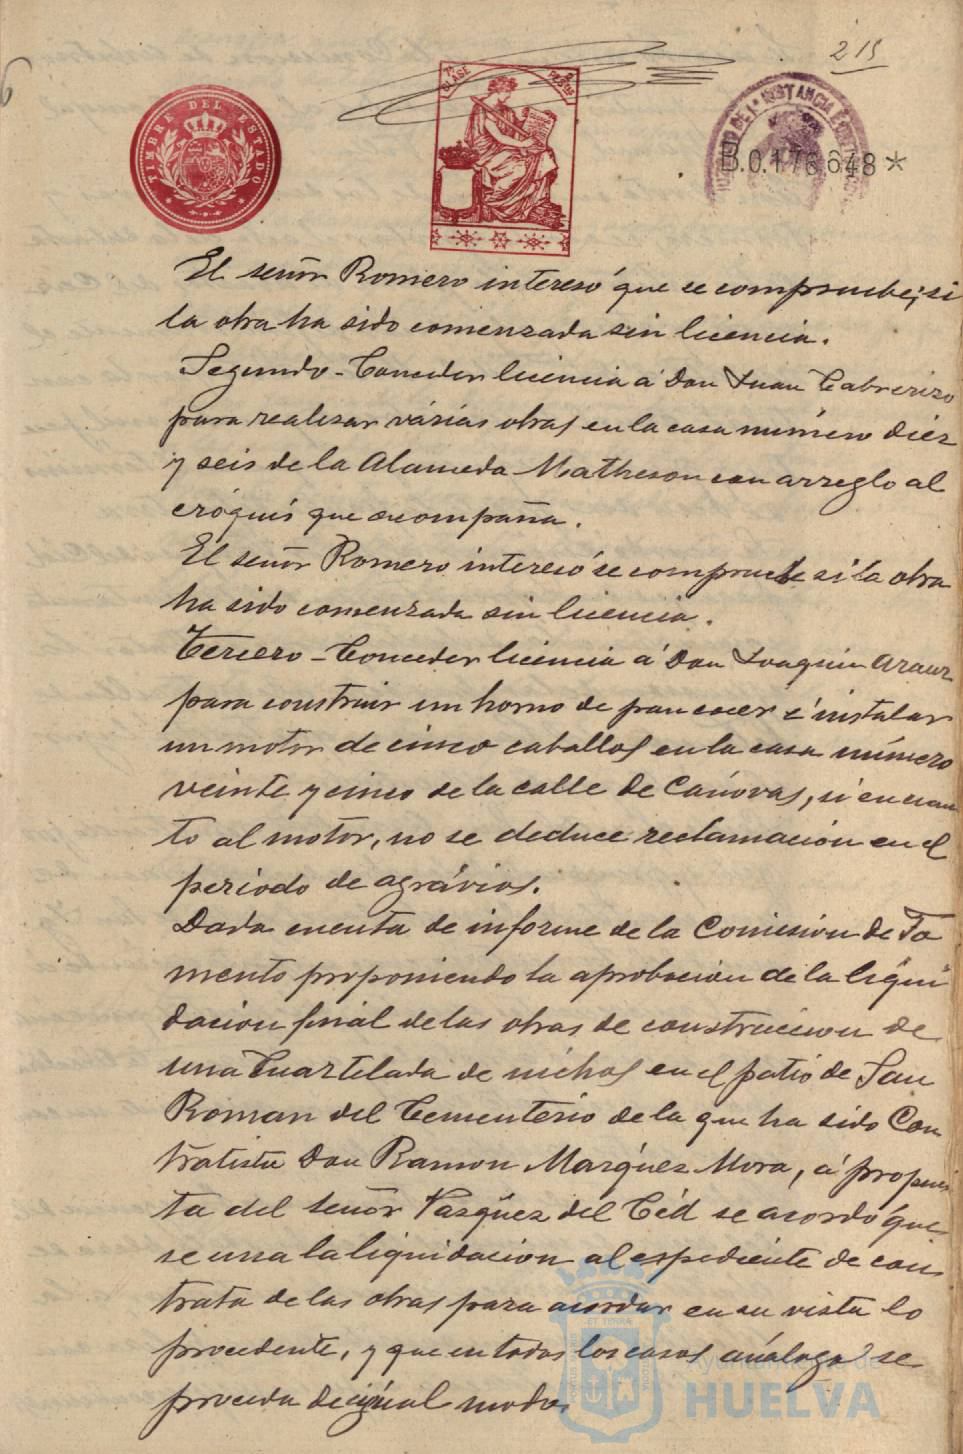 215
TIMBRE DEL ESTADO
7ª CLASE
2 PESETAS
JUZGADO DE 1ª INSTANCIA É
B.0.176,648*
El señor Romero interesó que se compruebe; si
la obra ha sido comenzada sin licencia.
Segundo - Conceder licencia á Don Juan Cabrerizo
para realizar várias obras en la casa número diez
y seis de la Alameda Matheson con arreglo al
cróquis que acompaña.
El señor Romero interesó se compruebe si la obra
ha sido comenzada sin licencia.
Tercero - Conceder licencia á Don Joaquin Arauz
para construir un horno de pan cocer é instalar
un motor de cinco caballos en la casa número
veinte y cinco de la calle de Cánovas, si en cuan
to al motor, no se deduce reclamación en el
periodo de agrávios.
Dada cuenta de informe de la Comision de Fo
mento proponiendo la aprobacion de la liqui
dacion final de las obras de construccion de
una Cuartelada de nichos en el patio de San
Roman del Cementerio de la que ha sido Con
tratista Don Ramon Marquez Mora, á propues
ta del señor Vazquez del Cid se acordó que
se una la liquidacion al espediente de con
trata de las obras para acordar en su vista lo
procedente, y que en todos los casos análogos se
proceda de igual modo.
Ayuntamiento de
HUELVA